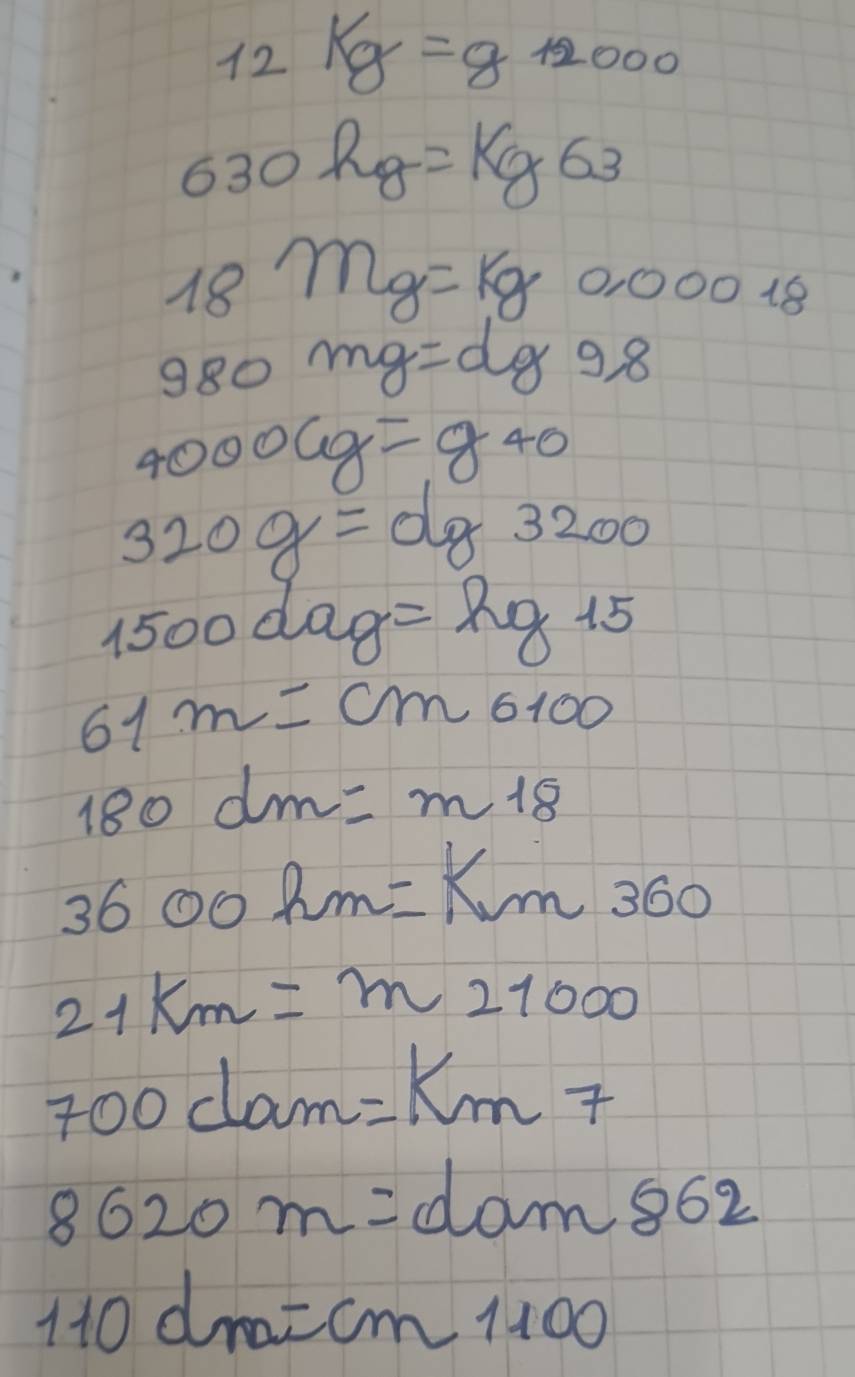 12 Kg = g 12000
630 hg = Kg 63
18 Mg = Kg 0,00018
980 mg = dg 9,8
4000 cg = g 40
320 g = dg 3200
1500 dag = hg 15
61 m = cm 6100
180 dm = m 18
3600 hm = Km 360
21 Km = m 21000
700 dam = Km 7
8620 m = dam 862
110 dm = cm 1100